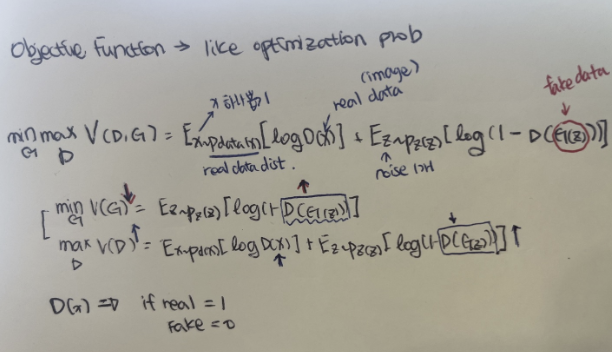 Objective Function → like optimization prob
(image)
x 하나뽑기
real data
fake data
min max V(D,G) = E x~pdata(x) [log D(x)] + E z~pz(z) [log(1 - D(G(z)))]
G D
real data dist.
noise
min V(G) = E z~pz(z) [log(1-D(G(z)))]
G
max V(D) = E x~pd(x) [log D(x)] + E z~pz(z) [log(1-D(G(z)))] ↑
D
D(x) ⇒ if real = 1
Fake = 0